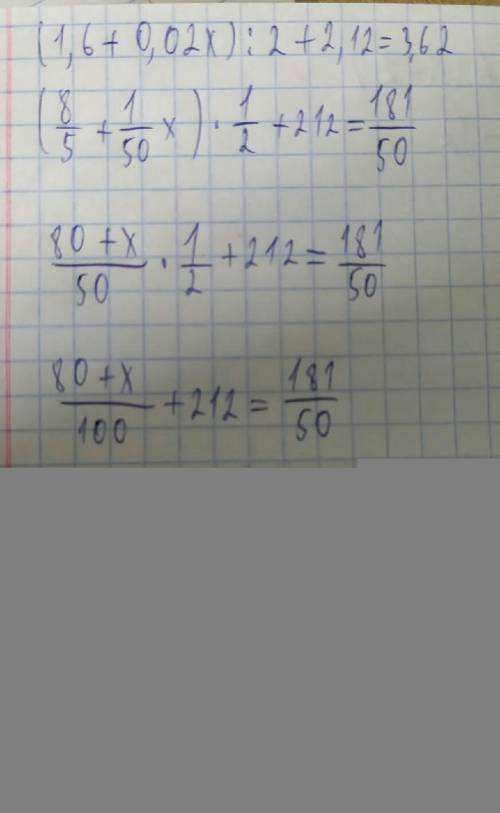 (1,6+0,02x):2+2,12=3,62
(8/5+1/50x)·1/2+212=181/50
80+x/50·1/2+212=181/50
80+x/100+212=181/50